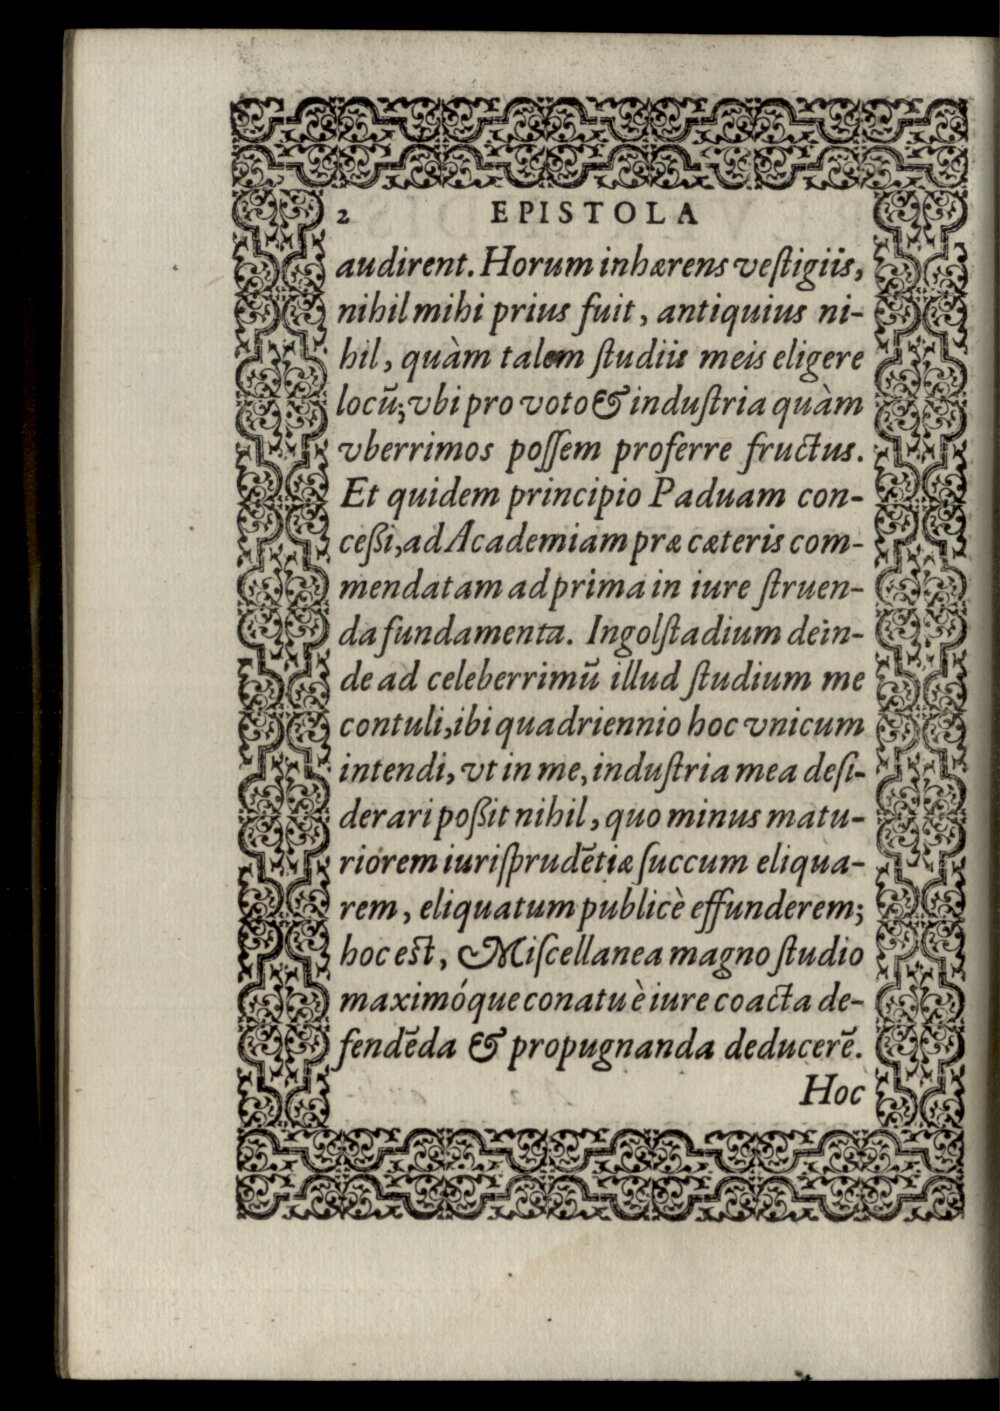 2 EPISTOLA
audirent. Horum inhærens veſtigiis,
nihil mihi prius fuit, antiquius ni-
hil, quàm talem ſtudiis meis eligere
locū; vbi pro voto & induſtria quàm
vberrimos poſſem proferre fructus.
Et quidem principio Paduam con-
ceßi, ad Academiam præ cæteris com-
mendatam ad prima in iure ſtruen-
da fundamenta. Ingolſtadium dein-
de ad celeberrimū illud ſtudium me
contuli, ibi quadriennio hoc vnicum
intendi, vt in me, induſtria mea deſi-
derari poßit nihil, quo minus matu-
riorem iuriſprudētiæ ſuccum eliqua-
rem, eliquatum publicè effunderem;
hoc eſt, Miſcellanea magno ſtudio
maximóque conatu è iure coacta de-
fendēda & propugnanda deducerē.
Hoc